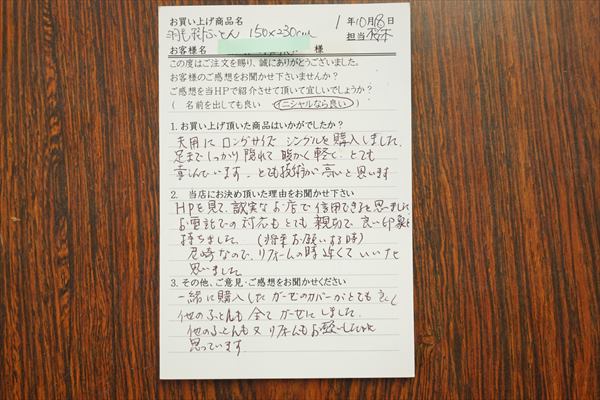 お買い上げ商品名
羽毛ふとん 150×230cm
1年10月18日
お客様名 様
担当
この度はご注文を賜り、誠にありがとうございました。
お客様のご感想をお聞かせ下さいませんか？
ご感想を当HPで紹介させて頂いて宜しいでしょうか？
（ 名前を出しても良い イニシャルなら良い ）
1. お買い上げ頂いた商品はいかがでしたか？
夫用に ロングサイズ シングルを購入しました。
足まで しっかり隠れて 暖かく 軽く、とても
喜んでいます。とても技術が高いと思います
2. 当店にお決め頂いた理由をお聞かせ下さい
HPを見て、誠実なお店で信用できると思いました
お電話での対応もとても親切で、良い印象を
持ちました。（将来お願いする時）
尼崎なので、リフォームの時 近くていいなと
思いました。
3. その他、ご意見・ご感想をお聞かせください
一緒に購入したガーゼのカバーがとても良く
他のふとんも 全て ガーゼにしました。
他のふとんも又 リフォームもお願いしたいと
思っています。